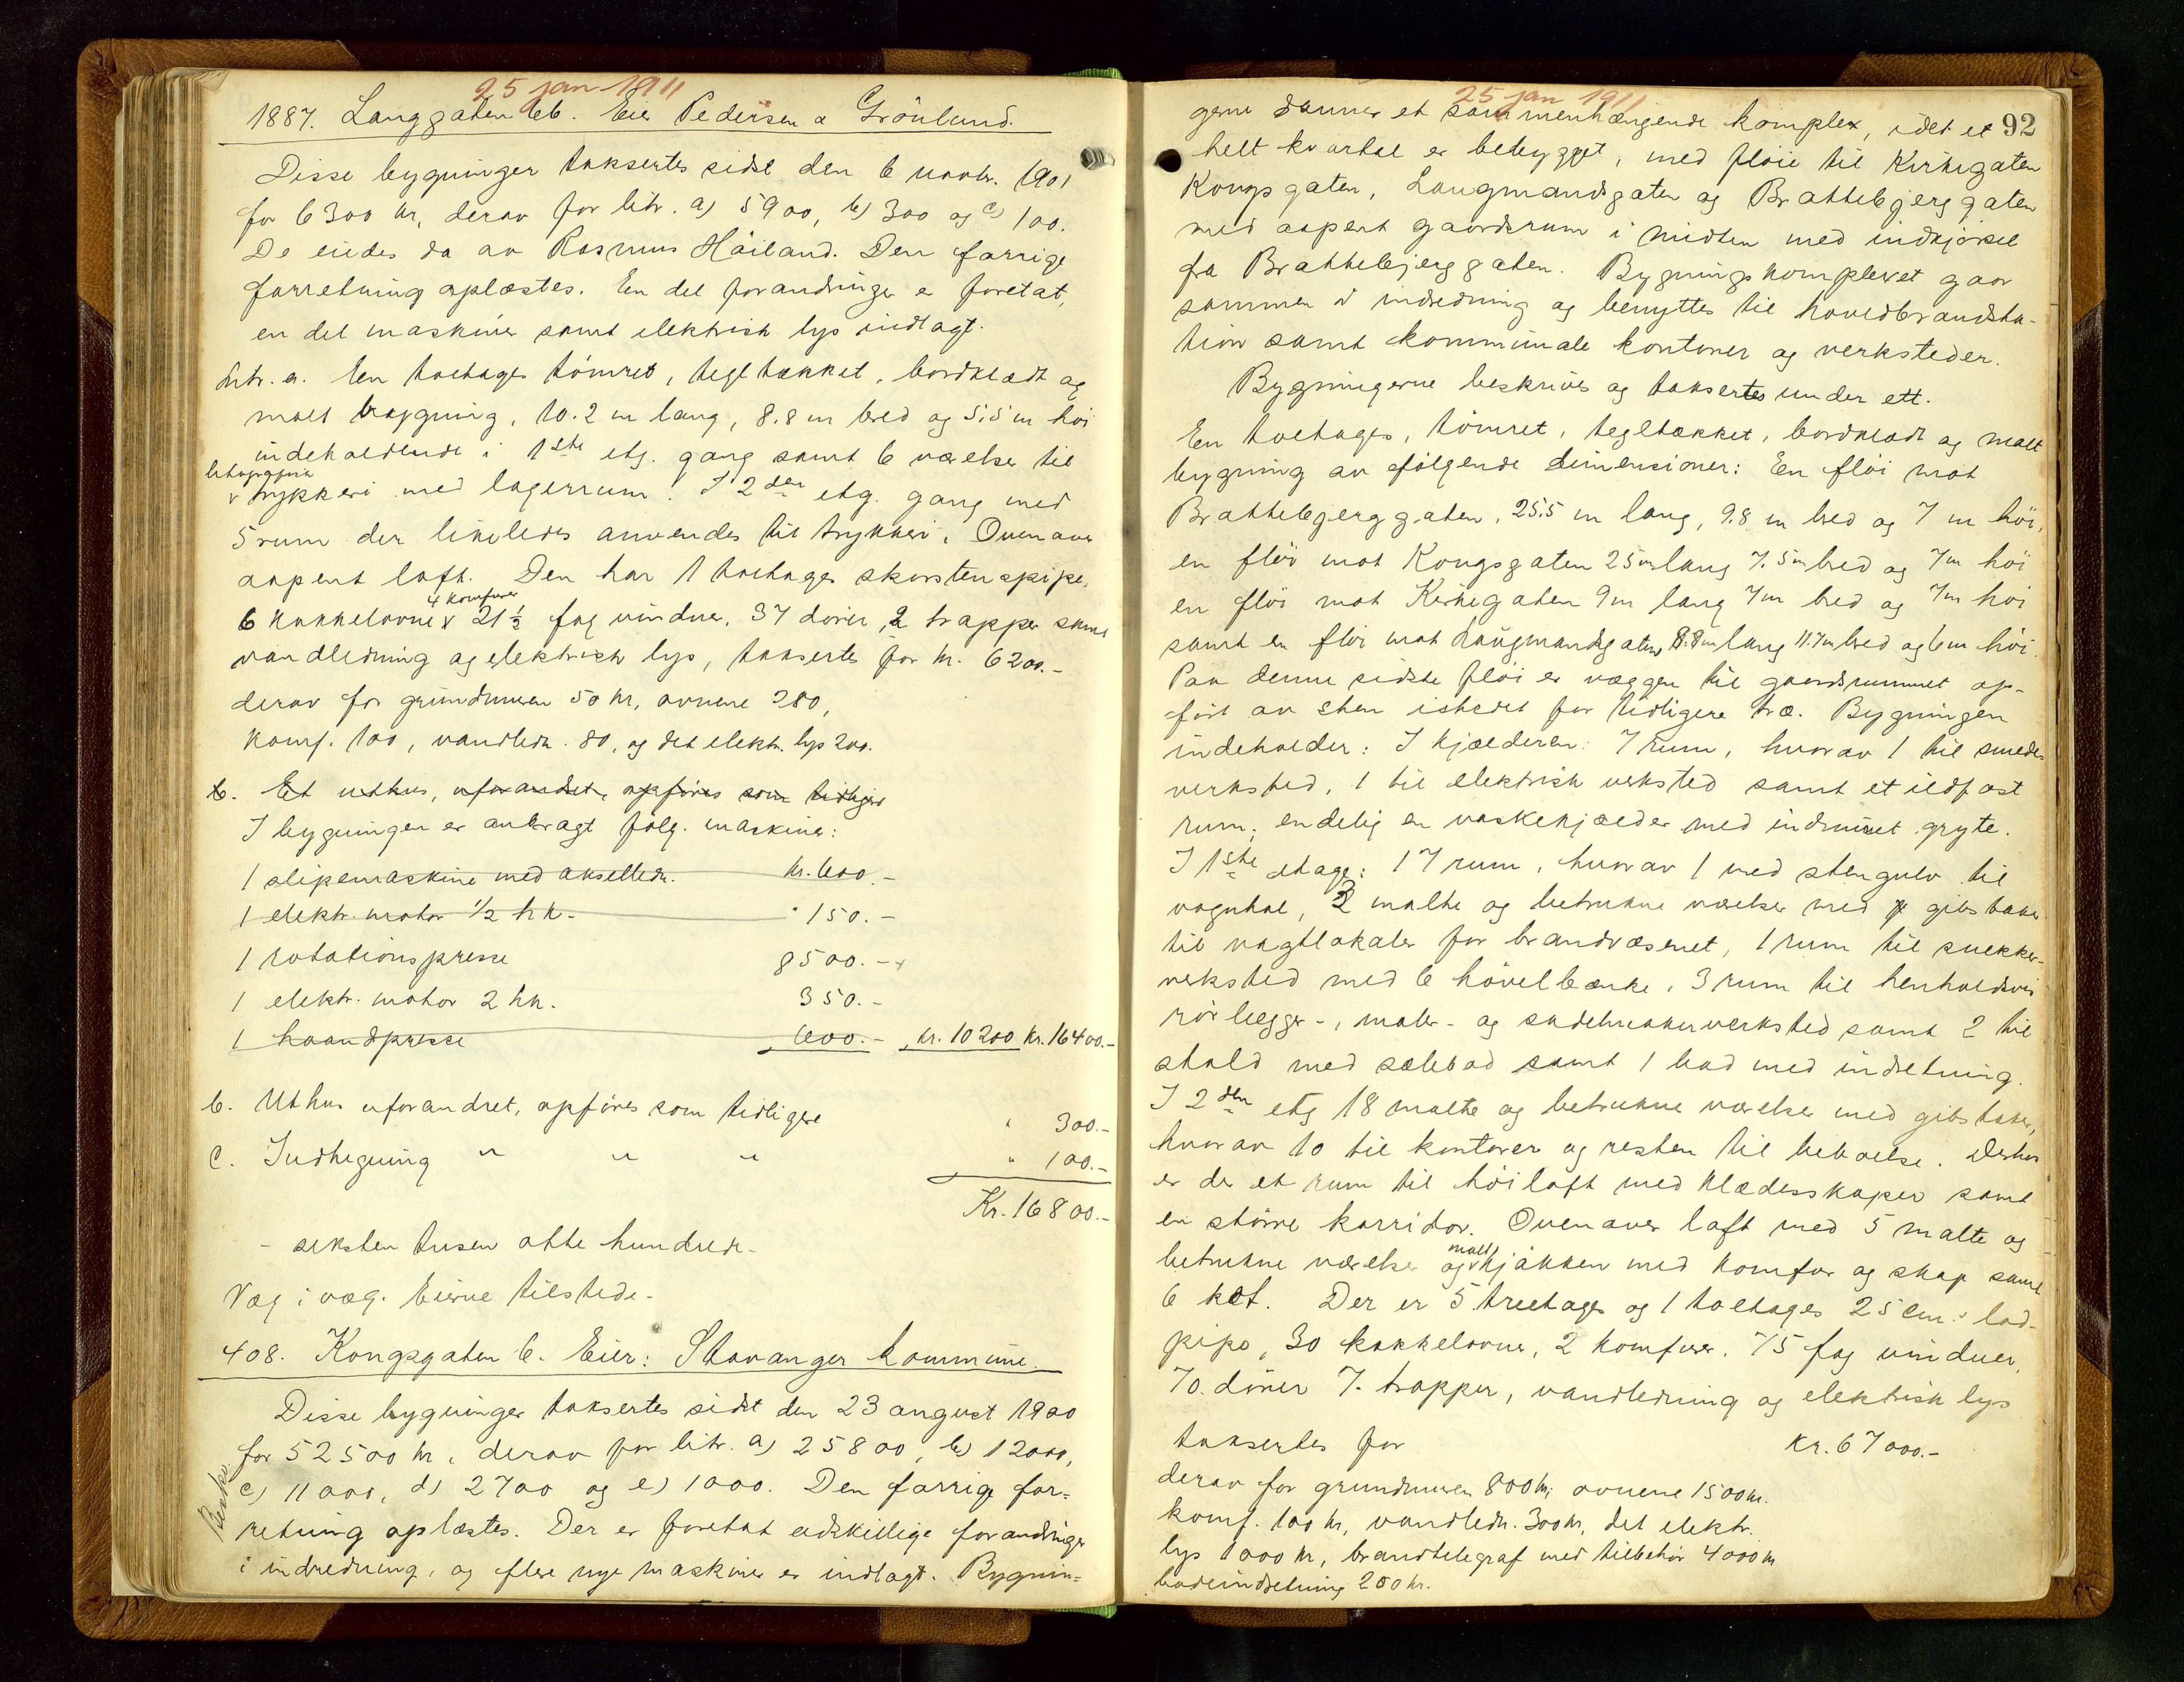 25 jan 1911
1887. Langgaten 66. Eier Pedersen & Grönlund.
Disse bygninger taksertes sidst den 6 novbr. 1901
for 6300 kr, derav for litr. a) 5900, b) 300 og c) 100.
De eiedes da av Rasmus Håiland. Den forrige
forretning oplæstes. En del forandringer er foretat,
en del maskiner samt elektrisk lys indlagt.
Litr. a. En toetages tömret, tegltækket, bordklædt og
malt bygning, 10.2 m lang, 8.8 m bred og 5,5 m höi
indeholdende i 1ste etg. gang samt 6 værelser til
v trykkeri med lagerrum. I 2den etg. gang med
5 rum der likeledes anvendes til trykkeri. Ovenover
aapent loft. Den har 1 toetages skorstenspipe,
4 komfurer
6 kakkelovne v 21 ½ fag vinduer, 37 dörer, 2 trapper samt
vandledning og elektrisk lys, taksertes for kr. 6200.-
derav for grundmuren 50 kr, ovnene 280,
komf. 100, vandledn. 80, og det elektr. lys 200.
b. Et uthus, uforandret, opföres som tidligere
I bygningen er anbragt fölg. maskiner:
1 slipemaskine med akselledn. kr. 600.-
1 elektr. motor 1/2 hk. " 150.-
1 rotationspresse 8500.-
1 elektr. motor 2 hk. 350.-
1 haandpresse 600.- kr. 10200 kr. 16400.-
b. Uthus uforandret, opföres som tidligere " 300.-
c. Indhegning " " " " 100.-
Kr. 16800.-
- seksten tusen otte hundrede -
Væg i væg. Eierne tilstede -
408. Kongsgaten 6. Eier: Stavanger kommune.
Disse bygninger taksertes sidst den 23 august 1900
for 52500 kr, derav for litr. a) 25800, b) 12000,
c) 11000, d) 2700 og e) 1000. Den forrige for-
retning oplæstes. Der er foretat adskillige forandringer
i indredning, og flere nye maskiner er indlagt. Bygnin-
25 jan 1911
92
gerne danner et sammenhængende kompleks, idet et
helt kvartal er bebygget, med flöie til Kirkegaten
Kongsgaten, Laugmandsgaten og Brattebjerggaten
med aapent gaardsrum i midten med indkjörsel
fra Brattebjerggaten. Bygningskomplekset gaar
sammen i indredning og benyttes til hovedbrandsta-
tion samt kommunale kontorer og verksteder.
Bygningerne beskrives og taksertes under ett.
En toetages, tömret, tegltækket, bordklædt og malt
bygning av fölgende dimensioner: En flöi mot
Brattebjerggaten, 25,5 m lang, 9.8 m bred og 7 m höi,
en flöi mot Kongsgaten 25 m lang 7.5 m bred og 7 m höi
en flöi mot Kirkegaten 9 m lang 7 m bred og 7 m höi
samt en flöi mot Laugmandsgaten 8.8 m lang 11.7 m bred og 6 m höi.
Paa denne sidste flöi er væggen til gaardsrummet op-
fört av sten istedet for tidligere træ. Bygningen
indeholder: I kjælderen: 7 rum, hvorav 1 til smede-
verksted, 1 til elektrisk verksted samt et ildfast
rum; endelig en vaskekjælder med indmuret gryte.
I 1ste etage: 17 rum, hvorav 1 med stengulv til
vognhal, 2 malte og betrukne værelser med gibstaker
til vagtlokaler for brandvæsenet, 1 rum til snekker-
verksted med 6 hövelbænke, 3 rum til henholdsvis
rörlægger-, maler- og sadelmakerverksted samt 2 til
stald med sælebod samt 1 bad med indretning.
I 2den etg 18 malte og betrukne værelser med gibstaker,
hvorav 10 til kontorer og resten til beboelse. Desuten
er der et rum til höiloft med klædesskaper samt
en större korridor. Ovenover loft med 5 malte og
malt
betrukne værelser og v kjökken med komfur og skap samt
6 kot. Der er 5 treetages og 1 toetages 25 cm.s lod-
pipe, 30 kakkelovne, 2 komfurer, 75 fag vinduer,
70 dörer 7 trapper, vandledning og elektrisk lys
taksertes for kr. 67000.-
derav for grundmuren 800 kr, ovnene 1500 kr.
komf. 100 kr, vandledn. 300 kr, det elektr.
lys 1000 kr, brandtelegraf med tilbehör 4000 kr
badeindretning 200 kr.